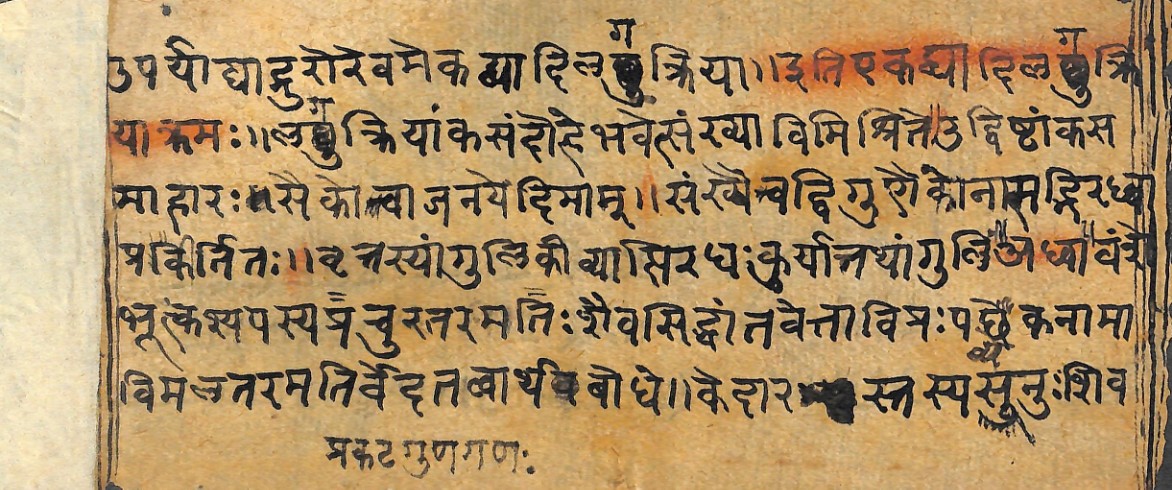 उपर्याद्याद्गुरोरेवमेकद्यादिलगक्रिया॥इतिएकद्यादिलगक्रि
याक्रमः॥लगक्रियांकसंदोहेभवेत्संख्याविमिश्रितेउद्दिष्टांकस
माहारः॥सैकोत्वाजनयेदिमाम्॥संख्यैवद्विगुणैकोनासद्भिरध्वा
प्रकिर्तितः॥वृत्तस्यांगुलिकीव्याप्तिरधःकुर्यात्तथांगुलिं
भूत्कश्यपस्यप्रचुरतरमतिःशैवसिद्धांतवेत्ताविप्रः कनामा
विमलतरमतिर्वेदतत्वार्थबोधे॥केदारस्तस्यसूनुःशिव
प्रकटगुणगणः